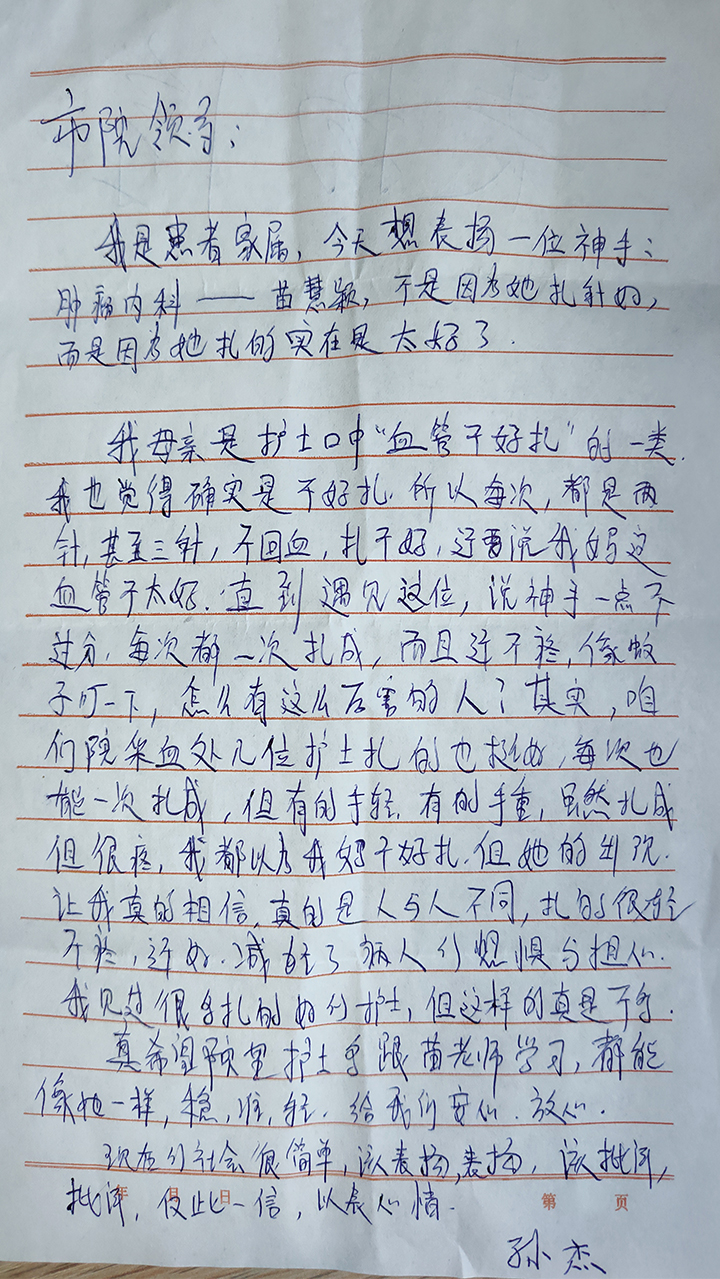 市院领导：
我是患者家属，今天想表扬一位神手：
肿瘤内科——苗慧颖，不是因为她扎针好，
而是因为她扎的实在是太好了.
我母亲是护士口中"血管不好扎"的一类.
我也觉得确实是不好扎.所以每次，都是两
针，甚至三针，不回血，扎不好，还要说我妈这
血管不太好.直到遇见这位，说神手一点不
过分.每次都一次扎成，而且还不疼，像蚊
子叮一下，怎么有这么厉害的人？其实，咱
们院采血处几位护士扎的也挺好，每次也
能一次扎成，但有的手轻.有的手重，虽然扎成
但很疼，我都以为我妈不好扎.但她的出现.
让我真的相信，真的是人与人不同，扎的很轻
不疼，还好.减轻了病人们恐惧与担心.
我见过很多扎的好的护士，但这样的真是不多.
真希望院里护士多跟苗老师学习，都能
像她一样，稳，准，轻.给我们安心.放心.
现在的社会很简单，该表扬，表扬，该批评，
批评，仅此一信，以表心情.
孙杰
年 月 日 第 页